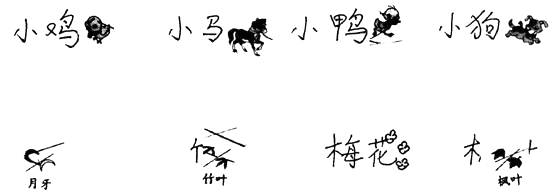 小鸡 小马 小鸭 小狗
竹 梅花
月牙 竹叶 枫叶